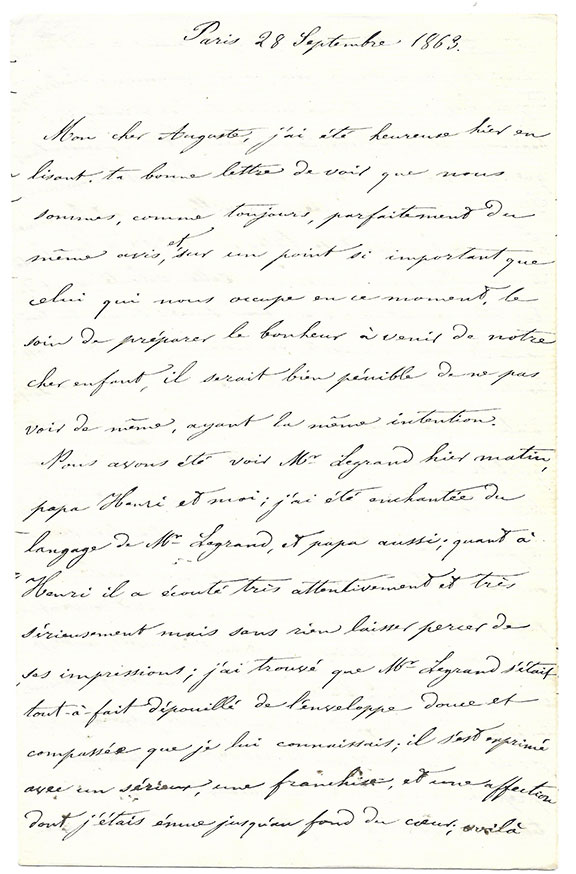 Paris 28 Septembre 1863.
Mon cher Auguste, j'ai été heureuse hier en
lisant ta bonne lettre de voir que nous
sommes, comme toujours, parfaitement du
même avis, et sur un point si important que
celui qui nous occupe en ce moment, le
soin de préparer le bonheur à venir de notre
cher enfant, il serait bien pénible de ne pas
voir de même, ayant la même intention.
Nous avons été voir Mr Legrand hier matin,
papa Henri et moi; j'ai été enchantée du
langage de Mr Legrand, et papa aussi; quant à
Henri il a écouté très attentivement et très
sérieusement mais sans rien laisser percer de
ses impressions; j'ai trouvé que Mr Legrand s'était
tout-à-fait dépouillé de l'enveloppe douce et
compassée que je lui connaissais; il s'est exprimé
avec un sérieux, une franchise, et une affection
dont j'étais émue jusqu'au fond du cœur; voilà